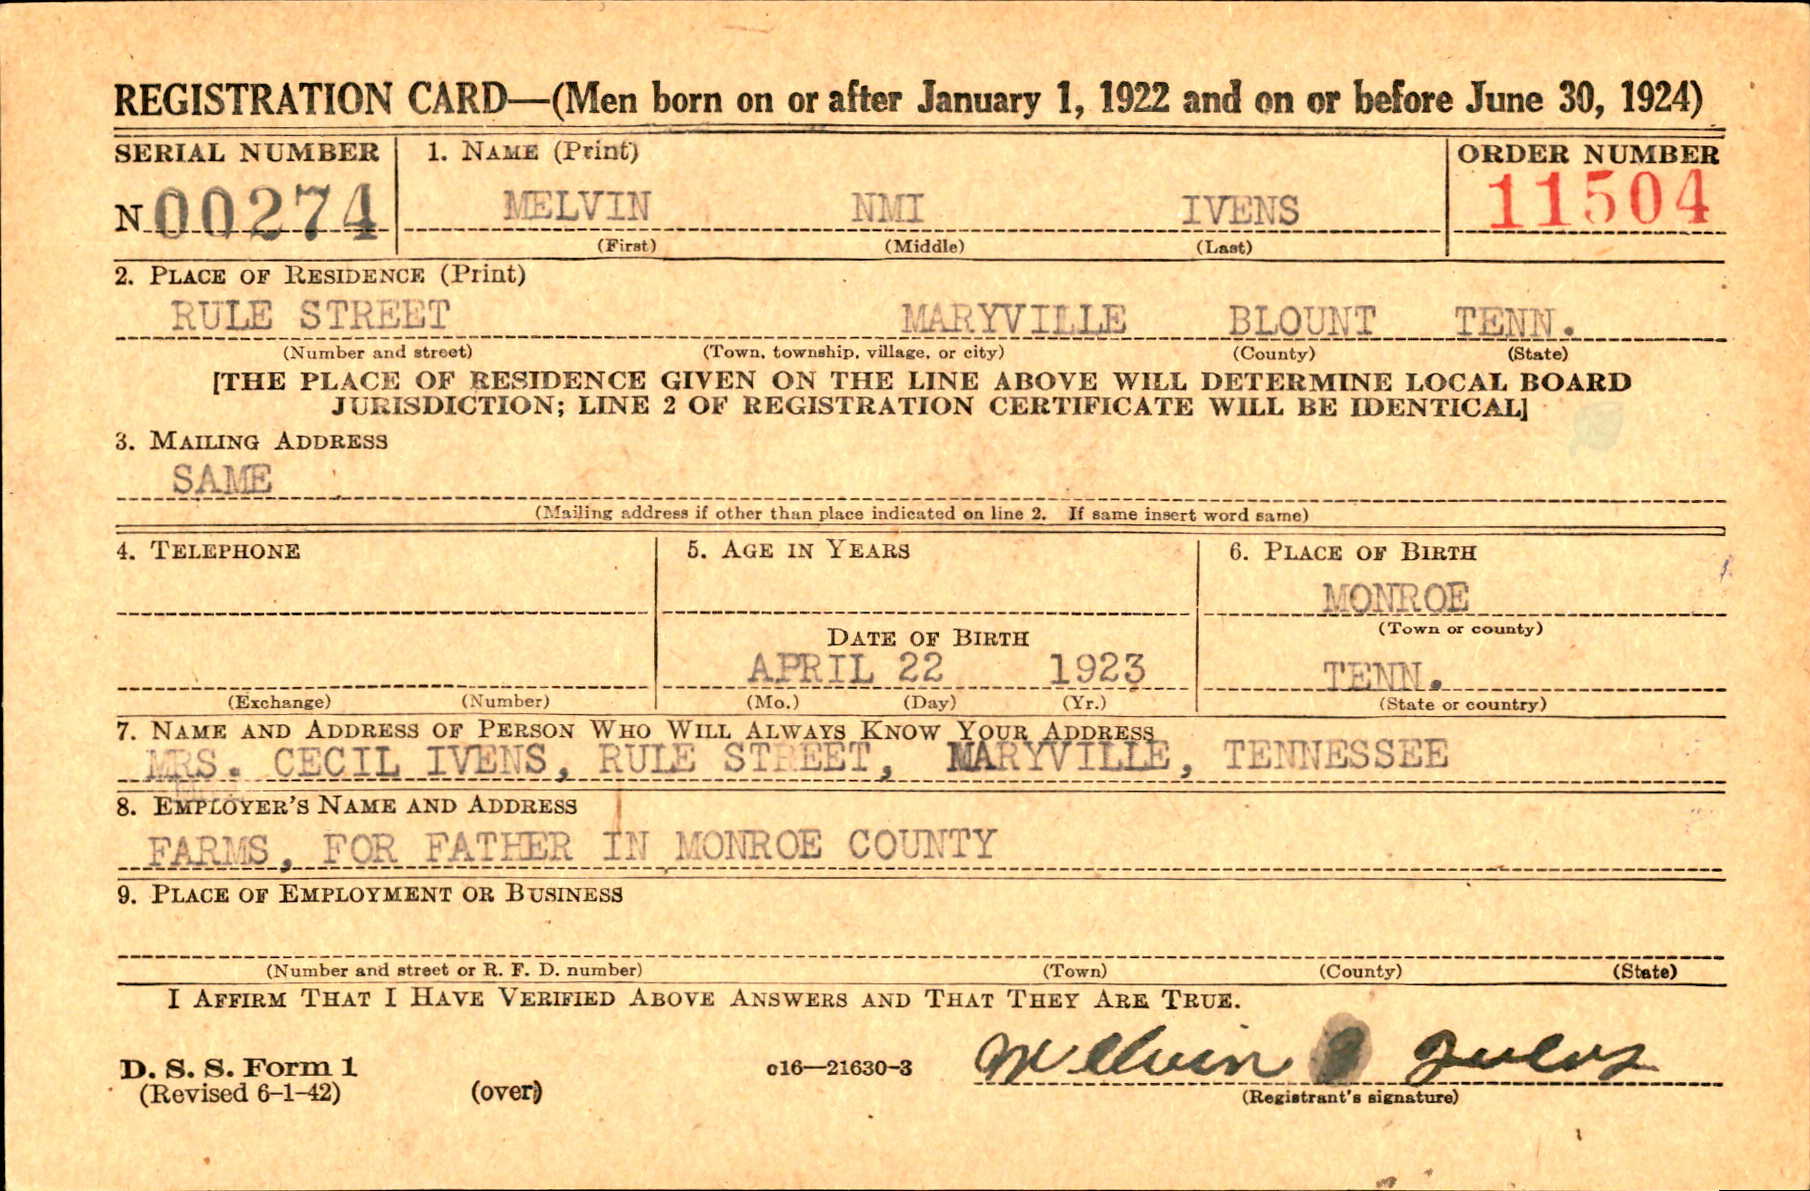 REGISTRATION CARD—(Men born on or after January 1, 1922 and on or before June 30, 1924)
SERIAL NUMBER
1. NAME (Print)
ORDER NUMBER
N 00274
MELVIN NMI IVENS
11504
(First) (Middle) (Last)
2. PLACE OF RESIDENCE (Print)
RULE STREET MARYVILLE BLOUNT TENN.
(Number and street) (Town, township, village, or city) (County) (State)
[THE PLACE OF RESIDENCE GIVEN ON THE LINE ABOVE WILL DETERMINE LOCAL BOARD
JURISDICTION; LINE 2 OF REGISTRATION CERTIFICATE WILL BE IDENTICAL]
3. MAILING ADDRESS
SAME
(Mailing address if other than place indicated on line 2. If same insert word same)
4. TELEPHONE
5. AGE IN YEARS
6. PLACE OF BIRTH
MONROE
(Town or county)
DATE OF BIRTH
APRIL 22 1923
TENN.
(Exchange) (Number)
(Mo.) (Day) (Yr.)
(State or country)
7. NAME AND ADDRESS OF PERSON WHO WILL ALWAYS KNOW YOUR ADDRESS
MRS. CECIL IVENS, RULE STREET, MARYVILLE, TENNESSEE
8. EMPLOYER'S NAME AND ADDRESS
FARMS, FOR FATHER IN MONROE COUNTY
9. PLACE OF EMPLOYMENT OR BUSINESS
(Number and street or R. F. D. number) (Town) (County) (State)
I AFFIRM THAT I HAVE VERIFIED ABOVE ANSWERS AND THAT THEY ARE TRUE.
D. S. S. Form 1
(Revised 6-1-42)
(over)
c16—21630-3
Melvin Ivens
(Registrant's signature)